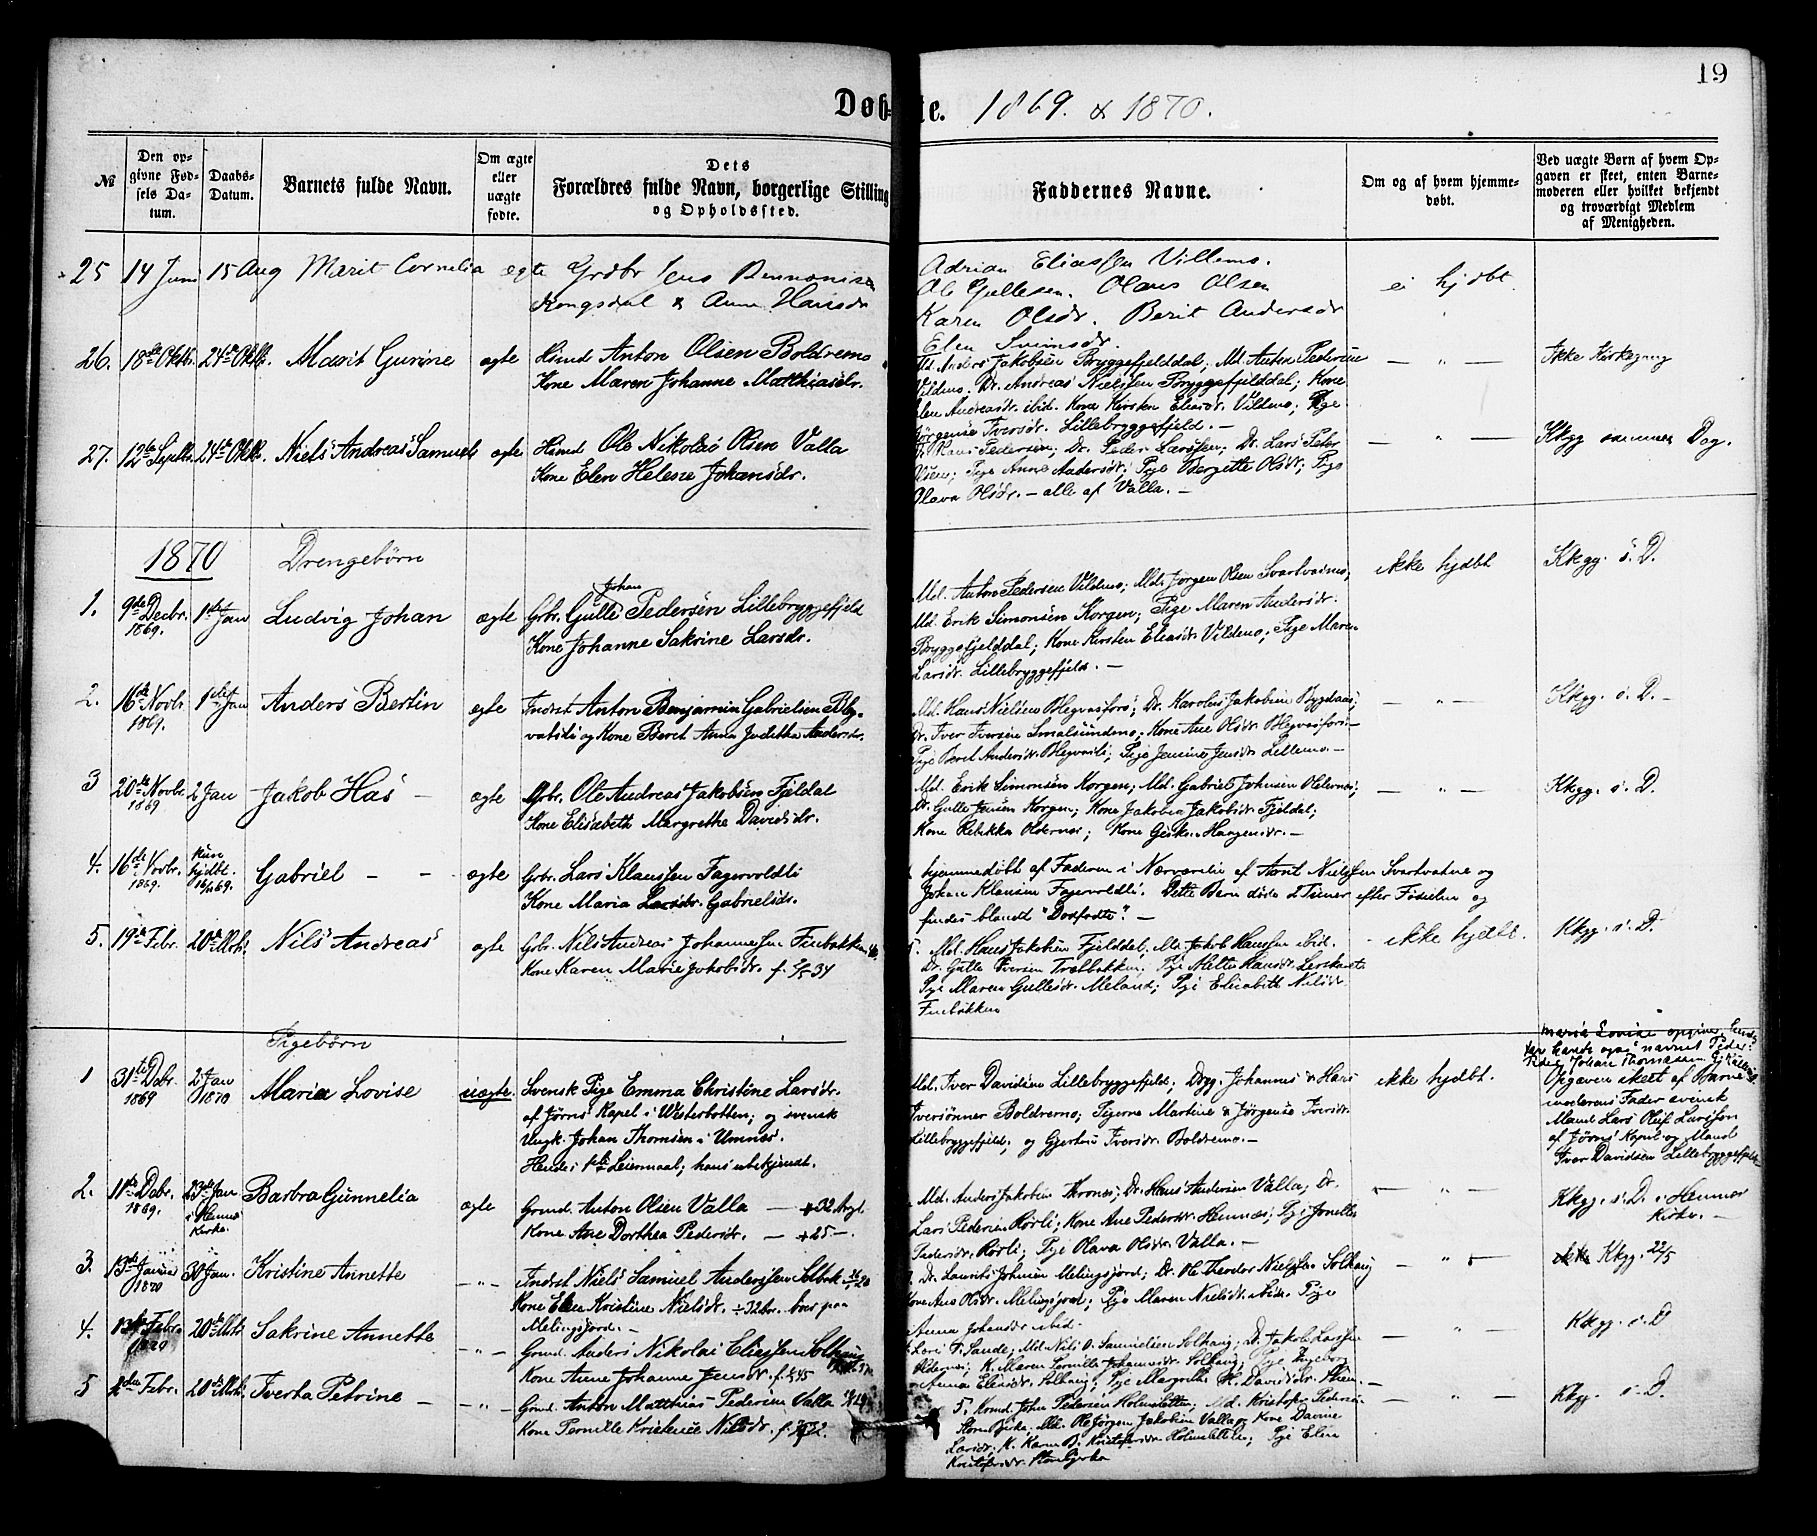 19
Døbte. 1869. & 1870.
№
Den opgivne Fødsels Datum.
Daabs-Datum.
Barnets fulde Navn.
Om ægte eller uægte fødte.
Dets Forældres fulde Navn, borgerlige Stilling og Opholdssted.
Faddernes Navne.
Om og af hvem hjemmedøbt.
Ved uægte Børn af hvem Opgaven er skeet, enten Barnemoderen eller hvilket bekjendt og troværdigt Medlem af Menigheden.
25 14 Juni 15 Aug Marit Cornelia ægte Grdbr Jens
Kongsdal & Anne Hansdr
Adrian Eliassen Villemo.
Ole Gullesen. Olaus Olsen
Karen Olsdr. Berit Andersdr
ei hjdbt.
26. 18de Oktbr. 24de Oktbr. Marit Gurine ægte Husmd Anton Olsen Boldremo
Kone Maren Johanne Matthiasdr.
Md. Anders Jakobsen Bryggefjelddal; Md. Anton Pedersen
Vildmo. Dr. Andreas Nielssen Bryggefjelddal; Kone
Elen Andreasdr. ibid. Kone Kirsten Eliasdr. Vildmo; Pige
Jørgense Iversdr. Lillebryggefjeld. —
— " — Ikke Kirkegang
27. 12te Septbr. 24de Oktbr. Niels Andreas Samuel ægte Husmd Ole Nikolai Olsen Valla
Kone Elen Helene Johansdr.
Hans Pedersen; Dr. Peder Larssen; Dr. Lars Peter
Olsen; Pige Anne Andersdr; Pige Bergitte Olsdr; Pige
Olava Olsdr. — alle af Valla. —
— " — Kkgg samme Dag.
1870 Drengebørn
1. 9de Decbr. 1869. 1ste Jan Ludvig Johan ægte Gbr. Gulle Johan Pedersen Lillebryggefjeld
Kone Johanne Sakrine Larsdr.
Md. Anton Pedersen Vildmo; Md. Jørgen Olsen Svartvatnmo;
Md. Erik Simonsen Korgen; Pige Maren Andersdr.
Bryggefjelddal; Kone Kirsten Eliasdr. Vildmo; Pige Maren
Larsdr. Lillebryggefjeld. —
ikke hjdbt Kkgg. s. D.
2. 16de Novbr. 1869. 1ste Jan Anders Bertin ægte Indrst Anton Benjamin Gabrielsen
og Kone Beret Anna Juditha Andersdr.
Md. Hans Nielsen; Dr. Karolus Jakobsen Bygdaas;
Dr. Iver Iversen Smalsundmo; Kone Ane Olsdr.
Pige Beret Andersdr.; Pige Jensine Jensdr. Lillemo. —
— " — Kkgg. s. D. —
3 20de Novbr. 1869 2 Jan Jakob Has — ægte Gbr. Ole Andreas Jakobsen Fjeldal
Kone Elisabeth Margrethe Davidsdr.
Md. Erik Simonsen Korgen; Md. Gabriel Johnsen Oldernes;
Dr. Gulle Jensen Korgen; Kone Jakobia Jakobsdr. Fjeldal;
Kone Rebekka Oldernes; Kone Haagensdr. —
— " — Kkgg. s. D.
4. 16de Novbr. 1869. kun hjdbt. 16/11 69. Gabriel — — ægte Gbr. Lars Klaussen Fagervoldli
Kone Maria Larsdr. Gabrielsdr.
hjemmedøbt af Faderen i Nærværelse af Arnt Nielssen Svartvatne og
Johan Klausen Fagervoldli. Dette Barn døde 2 Timer efter Fødselen og
findes blandt "Dødfødte". —
5. 19de Febr. 20de Mts. Nils Andreas ægte Gbr. Nils Andreas Johannessen Finbakken
Kone Karen Marie Jakobsdr. f. 34
5. Md. Hans Jakobsen Fjelddal; Md. Jakob Hanssen ibid.
Dr. Gulle Iversen Trælbakken; Pige Mette Hansdr. Leerskaret
Pige Maren Gullesdr. Meland; Pige Elisabeth Nilsdr.
Finbakken
— ikke hjdbt. Kkgg. s. D.
Pigebørn
1 31te Dcbr. 1869 2 Jan 1870 Maria Lovise uægte. Svensk Pige Emma Christine Larsdr.
af Jørns Kapel i Westerbotten; og svensk
Ungk. Johan Thomsen i Umnæs.
Hendes 1ste Leiermaal; hans ubekjendt.
Md. Iver Davidsen Lillebryggefjeld; Johannes & Hans
Iversønner Boldremo; Pigerne Martine & Jørgense Iversdr.
Lillebryggefjeld; og Gjertru Iversdr. Boldremo. —
ikke hjdbt.
Maria Lovise opgiver
Johan Thomassen
Opgaven skeet af Barnemoderens Fader svensk
Mand Lars Oluf Larssen
af Jørns Kapel og Mand
Iver Davidsen Lillebryggefjeld
2. 11te Dcbr. 1869. 23de Jan i Hemnes Kirke. Barbra Gunnelia ægte Grmd. Anton Olsen Valla — +32 Aagl.
Kone Ane Dorthea Pedersdr. — +25 —.
Md. Anders Jakobsen; Dr. Hans Andersen Valla; Dr.
Lars Pedersen Rørli; Kone Ane Pedersdr. Hemnes; Pige
Pedersdr. Rørli; Pige Olava Olsdr. Valla. —
— " — Kkgg. s. D. i Hemnes Kirke. —
3. 13de Januar 1870 30 Jan. Kristine Annette — " — Indrst Niels Samuel Anderssen
Kone Elen Kristine Nielsdr. ÷ 32 bor paa
Melingsjord. —
Dr. Laurits Johnsen Melingsjord; Dr. Ole Theodor Nielssen Solhaug
Kone Ane Olsdr. Melingsjord; Pige Maren Nielsdr. ibid. Pige
Anna Johansdr ibid.
— " — Kkgg. 22/5
4. 13de Febr. 1870 20de Mts Sakrine Annette — " — Grmd. Anders Nikolai Eliessen Solhaug
Kone Anne Johanne Jensdr. f. 45
Sande; Md. Nils O. Samuelsen Solhaug; D. Jakob Larssen
Oldernes; K. Maren Pernille Johannesdr. Solhaug; Pige Ingeborg
Anna Eliesdr. Solhaug; Pige Margrethe Davidsdr.
— " — Kkgg. s. D
5 2den Febr. 20de Mts. Iverha Petrine — — " — Grmd. Anton Matthias Pedersen Valla
Kone Pernille Kristense Nilsdr. f. 32.
5. Kvmd. John Pedersen Holmsletten; Md. Kristofer Pedersen
Storebjerka; Md. Ole Jørgen Jakobsen Valla og Kone Davine
Larsdr. K. Karen B. Kristofersdr. Holmsletten; Pige Elen
Kristofersdr. Storebjerka
— " — Kkgg. s. D.